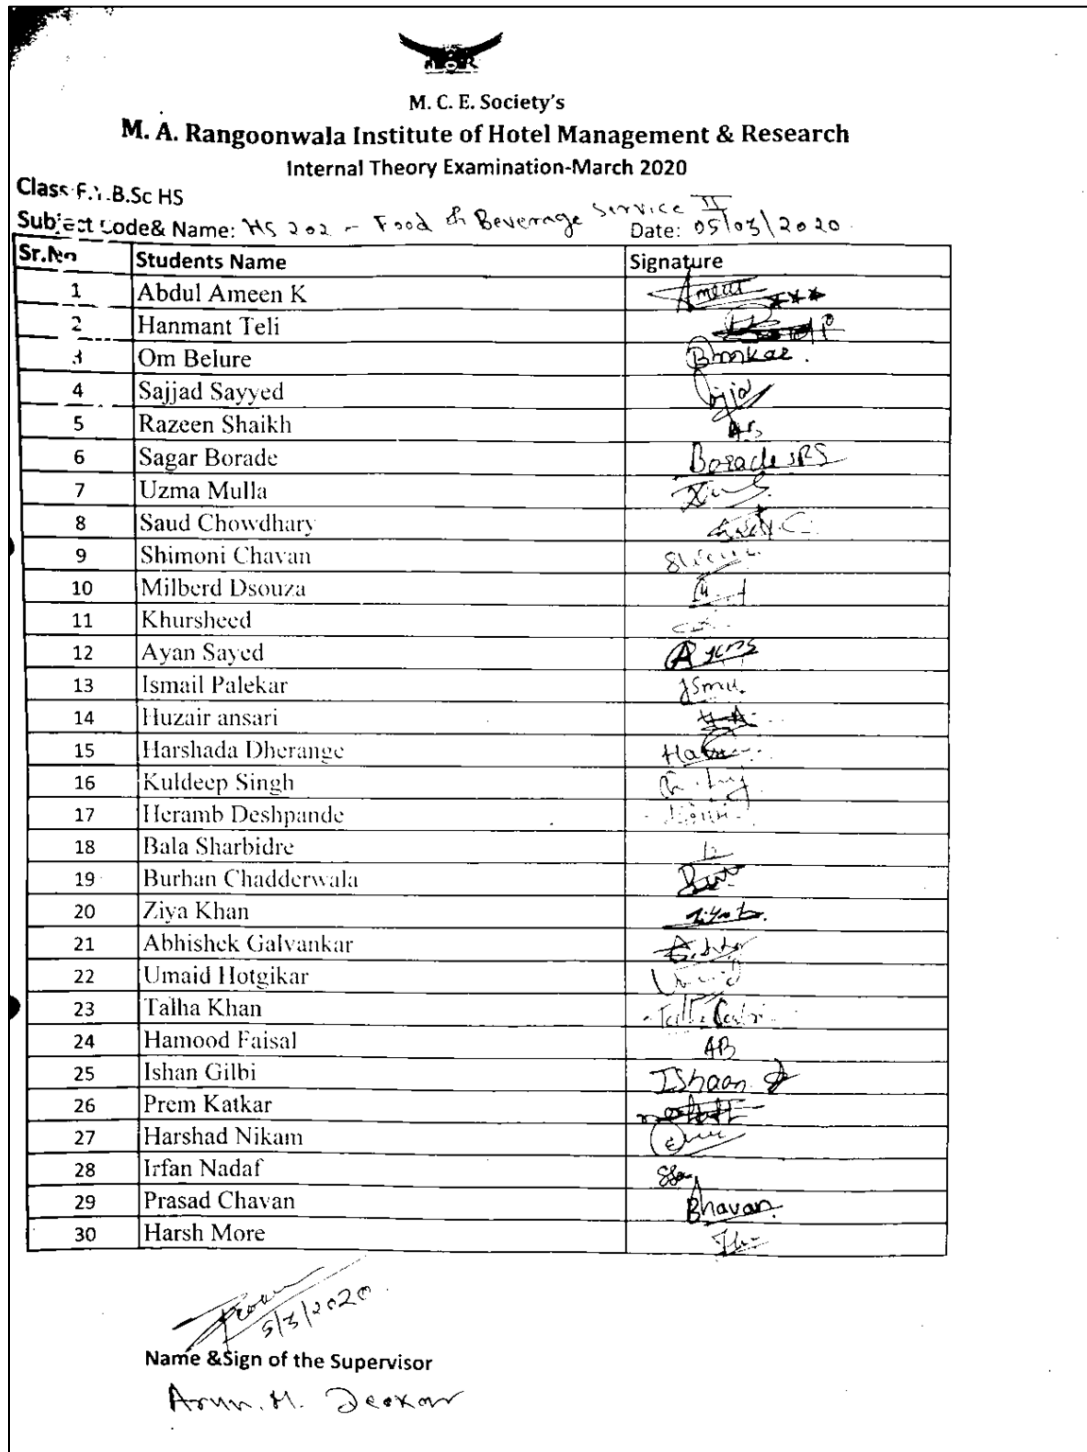 M. C. E. Society's
M. A. Rangoonwala Institute of Hotel Management & Research
Internal Theory Examination-March 2020
Class F.Y.B.Sc HS
Subject Code& Name: HS 202 - Food & Beverage Service II Date: 05/03/2020
Sr.No Students Name Signature
1 Abdul Ameen K Ameen
2 Hanmant Teli
3 Om Belure
4 Sajjad Sayyed
5 Razeen Shaikh AB
6 Sagar Borade Borade SRS
7 Uzma Mulla
8 Saud Chowdhary
9 Shimoni Chavan
10 Milberd Dsouza
11 Khursheed
12 Ayan Sayed
13 Ismail Palekar
14 Huzair ansari
15 Harshada Dherange
16 Kuldeep Singh
17 Heramb Deshpande
18 Bala Sharbidre
19 Burhan Chadderwala
20 Ziya Khan
21 Abhishek Galvankar
22 Umaid Hotgikar
23 Talha Khan
24 Hamood Faisal AB
25 Ishan Gilbi Ishaan
26 Prem Katkar
27 Harshad Nikam
28 Irfan Nadaf
29 Prasad Chavan Bhavan
30 Harsh More
5/3/2020
Name &Sign of the Supervisor
Arun. M. Deokar